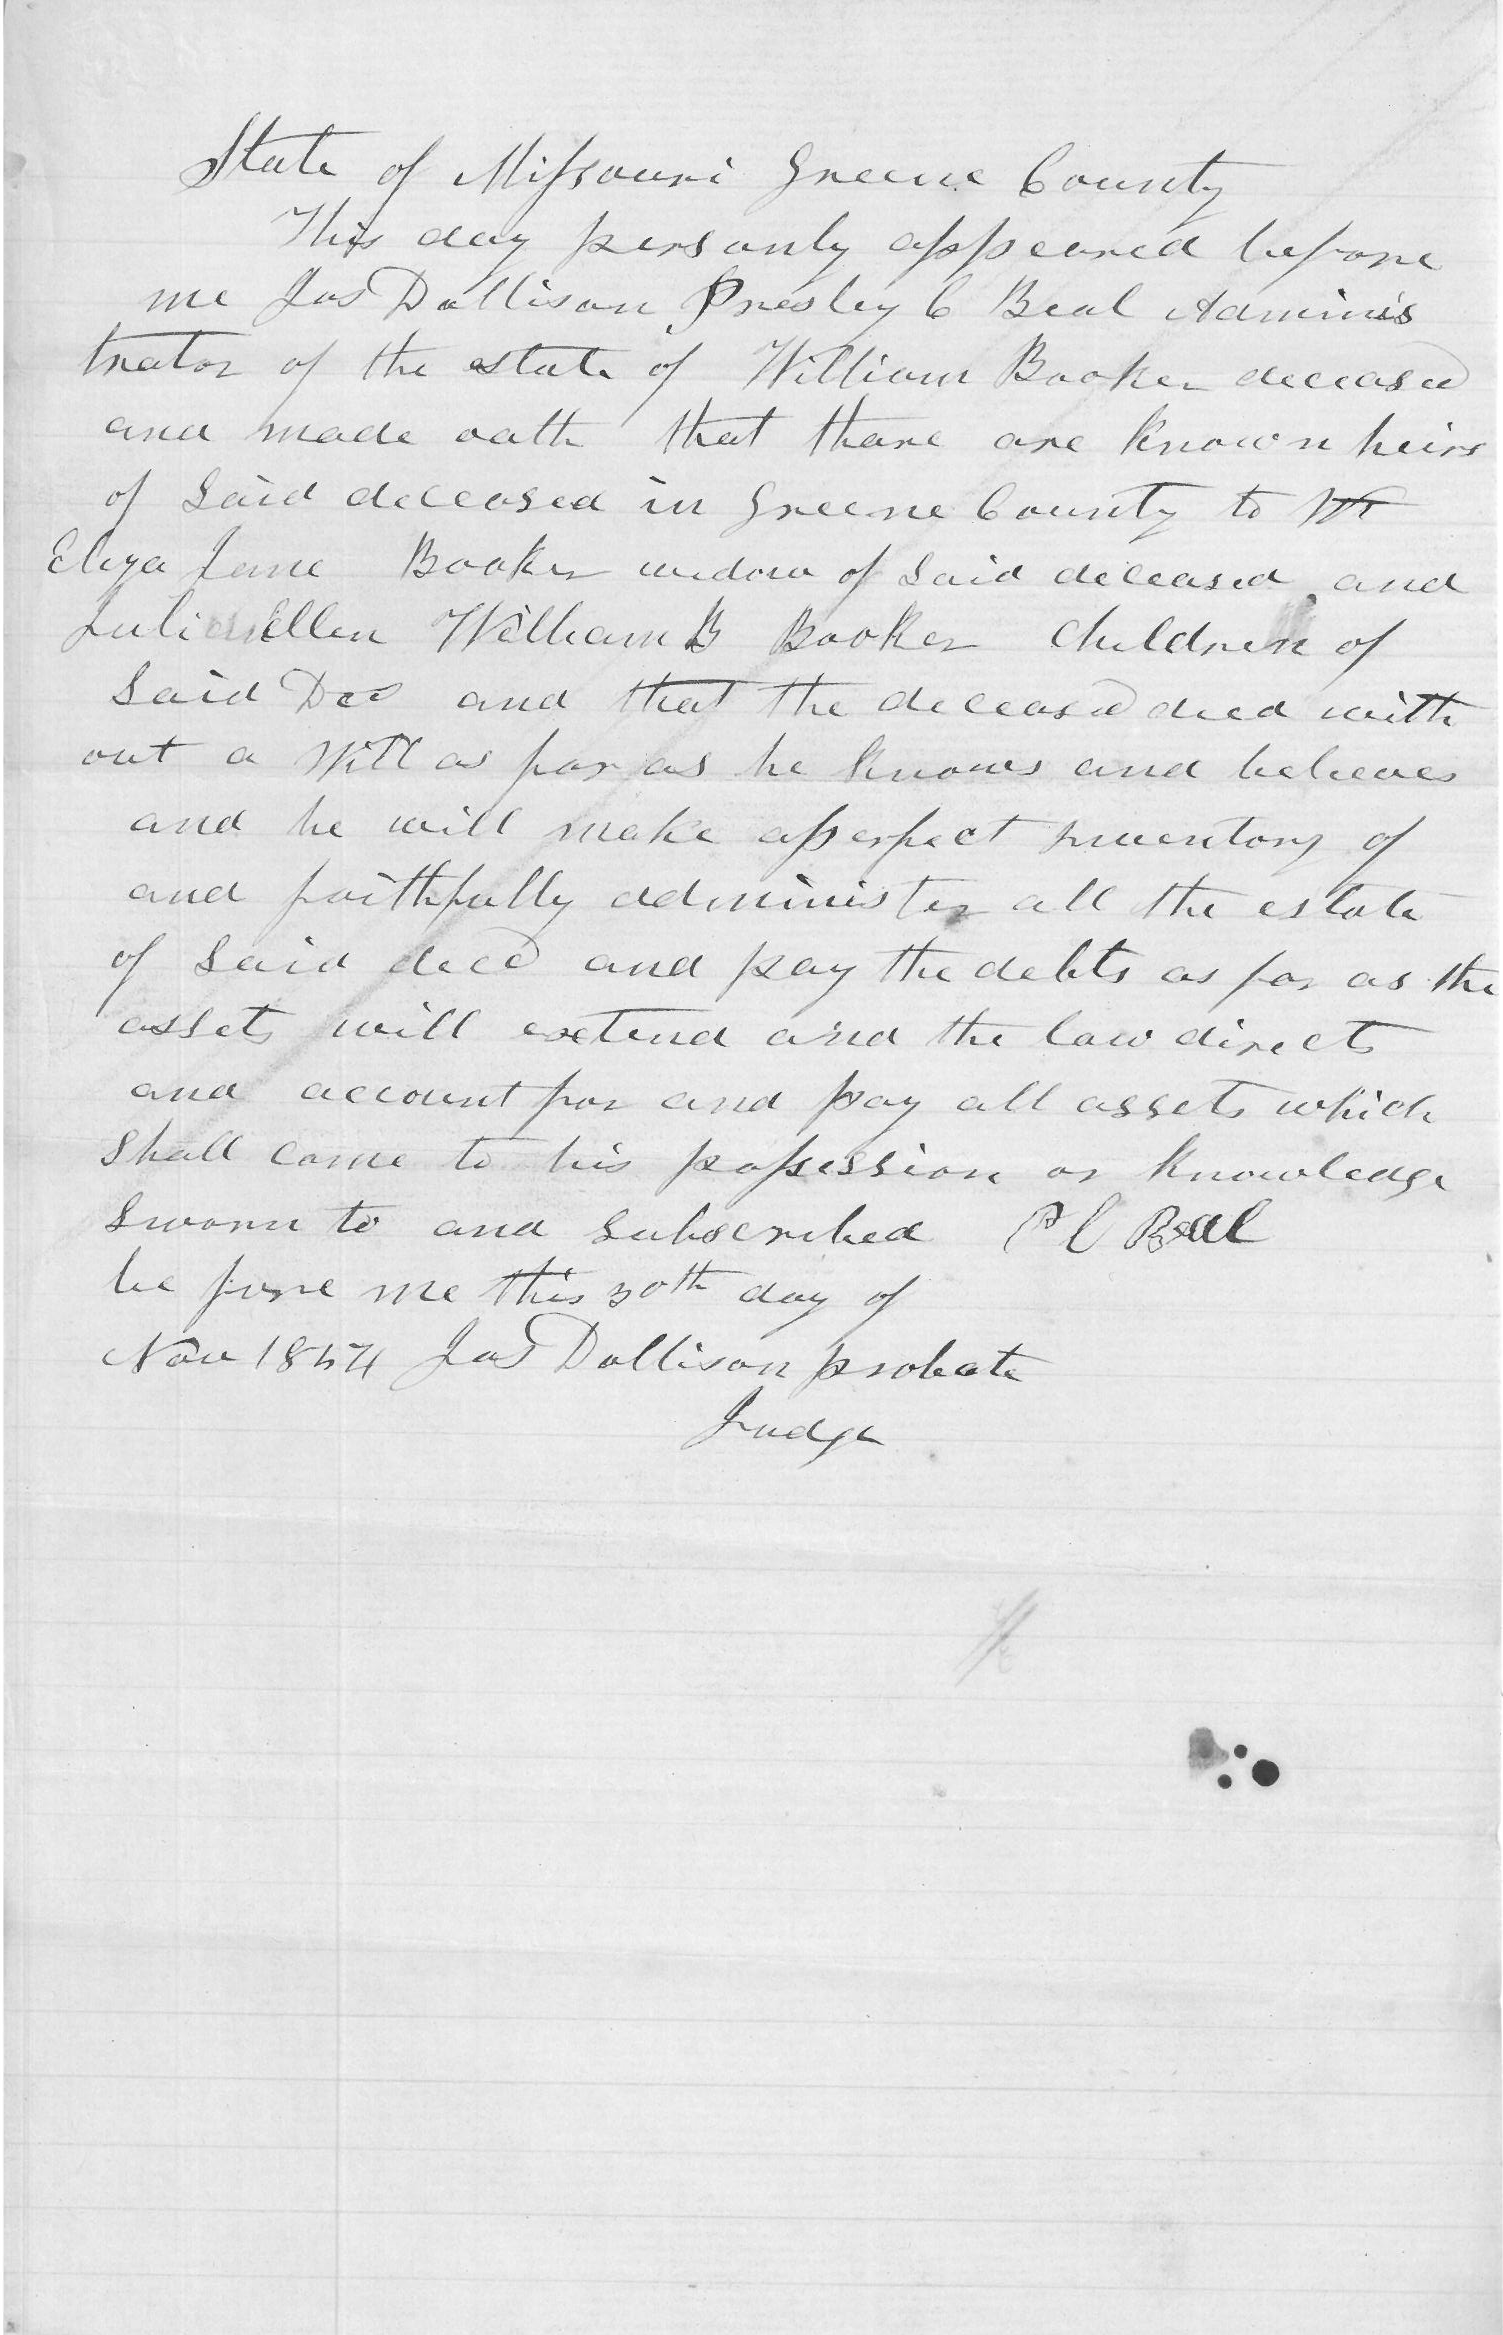 State of Missouri Greene County
This day personly appeared before
me Jas Dollison Presley C Beal Adminis
trator of the estate of William Booker deceased
and made oath that thare are known heirs
of Said deceased in Greene County to wit
Eliza Jane Booker widow of Said deceased and
Juli Ellen William B Booker Children of
Said Dec and that the deceased died with
out a Will as far as he knows and believes
and he will make a perfect inventory of
and faithfully administer all the estate
of Said decd and pay the debts as far as the
assets will extend and the law directs
and account for and pay all assets which
Shall Come to his possession or Knowledge
Sworn to and Subscribed P C Beal
be fore me this 30th day of
Nov 1854 Jas Dollison probate
Judge